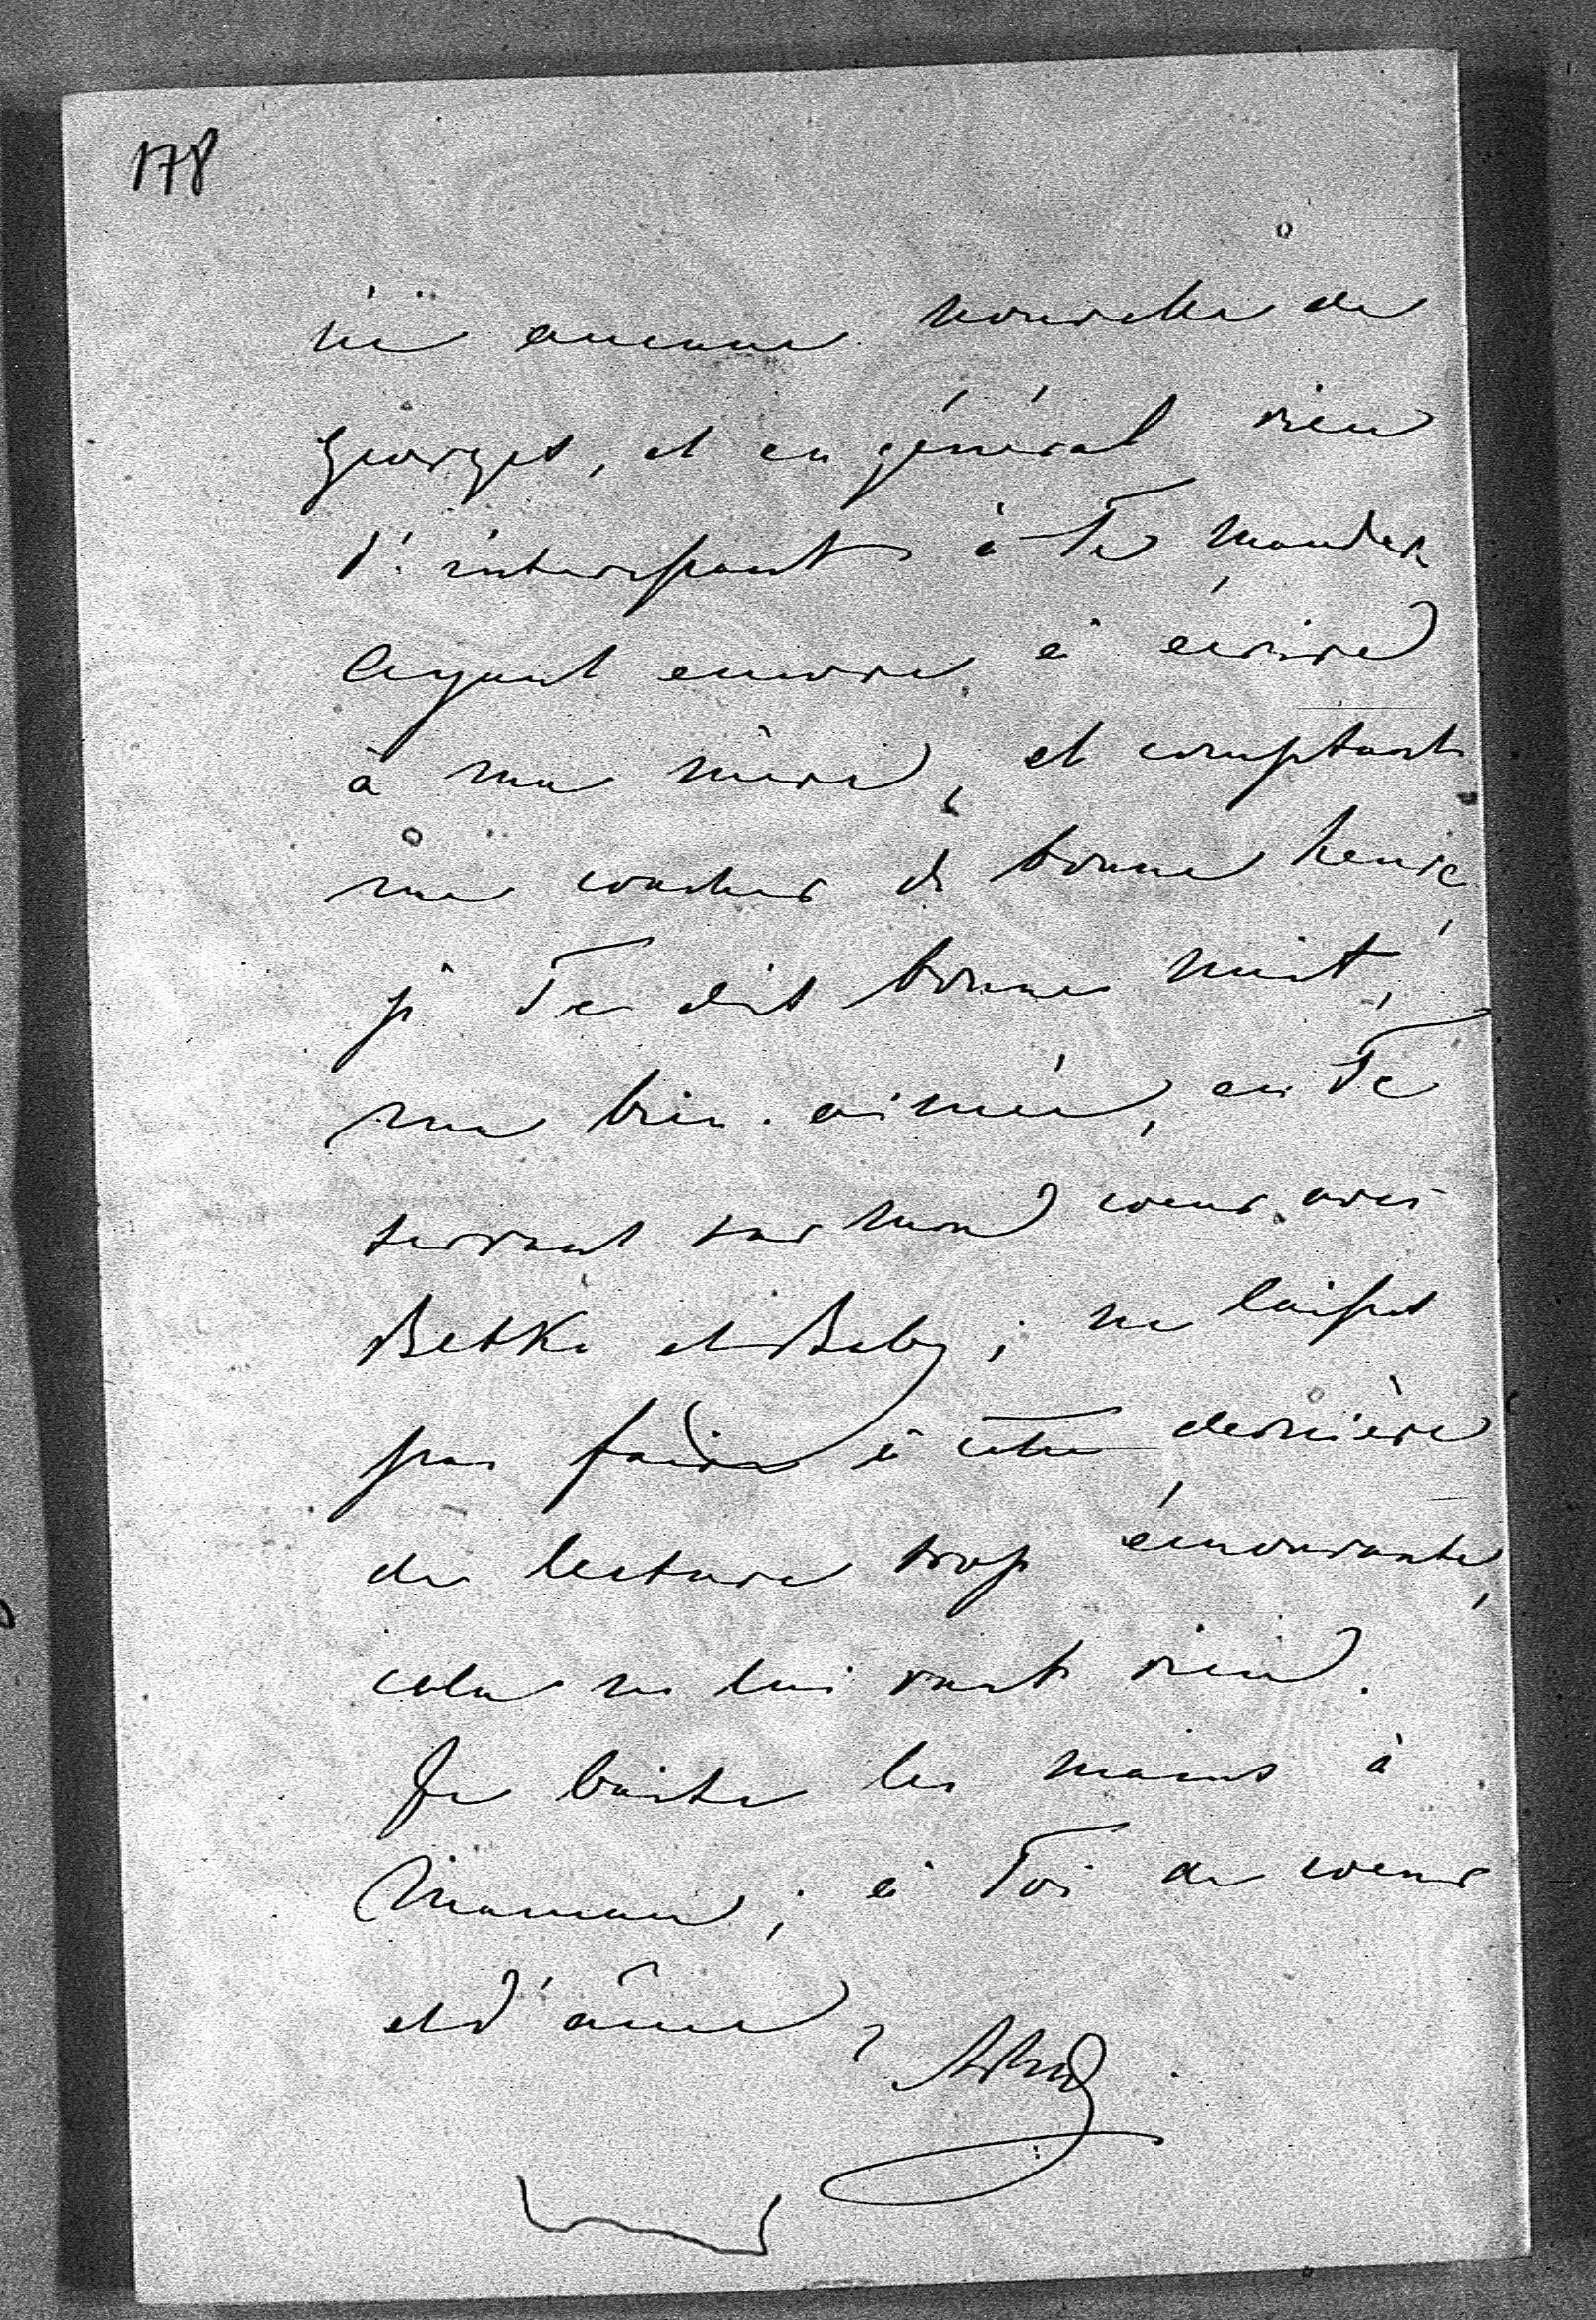 178
ni aucune nouvelle de
Georges, et en général rien
d'intéressant à Te mander
Ayant encore à écrire
à ma mère, et comptant
me coucher de bonne heure,
je Te dis bonne nuit,
ma bien-aimée, en Te
serrant sur mon coeur avec
Betke et Baby; ne laisse
pas faire à cette dernière
de lecture trop émouvante,
cela ne lui vaut rien.
Je baise les mains à
Maman; à Toi de coeur
et d'âme,